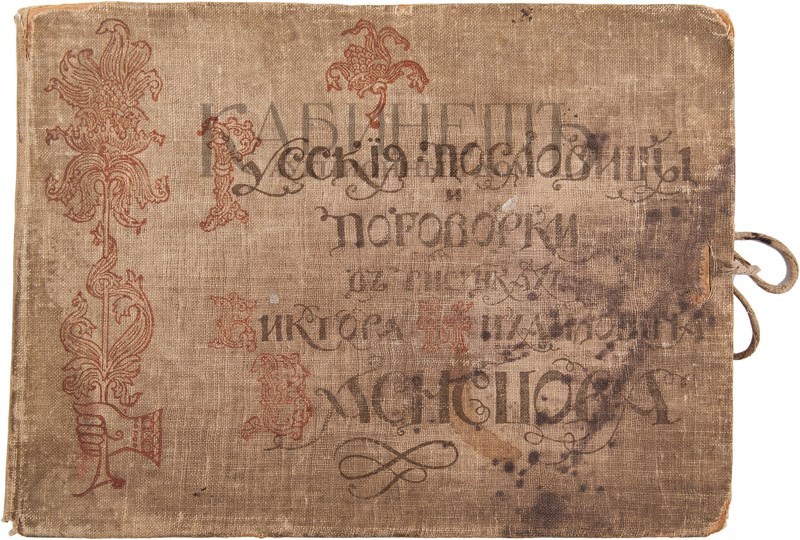 КАБИНЕТЪ
Русскія пословицы
и
поговорки
въ рисункахъ
Виктора Михайловича
Васнецова